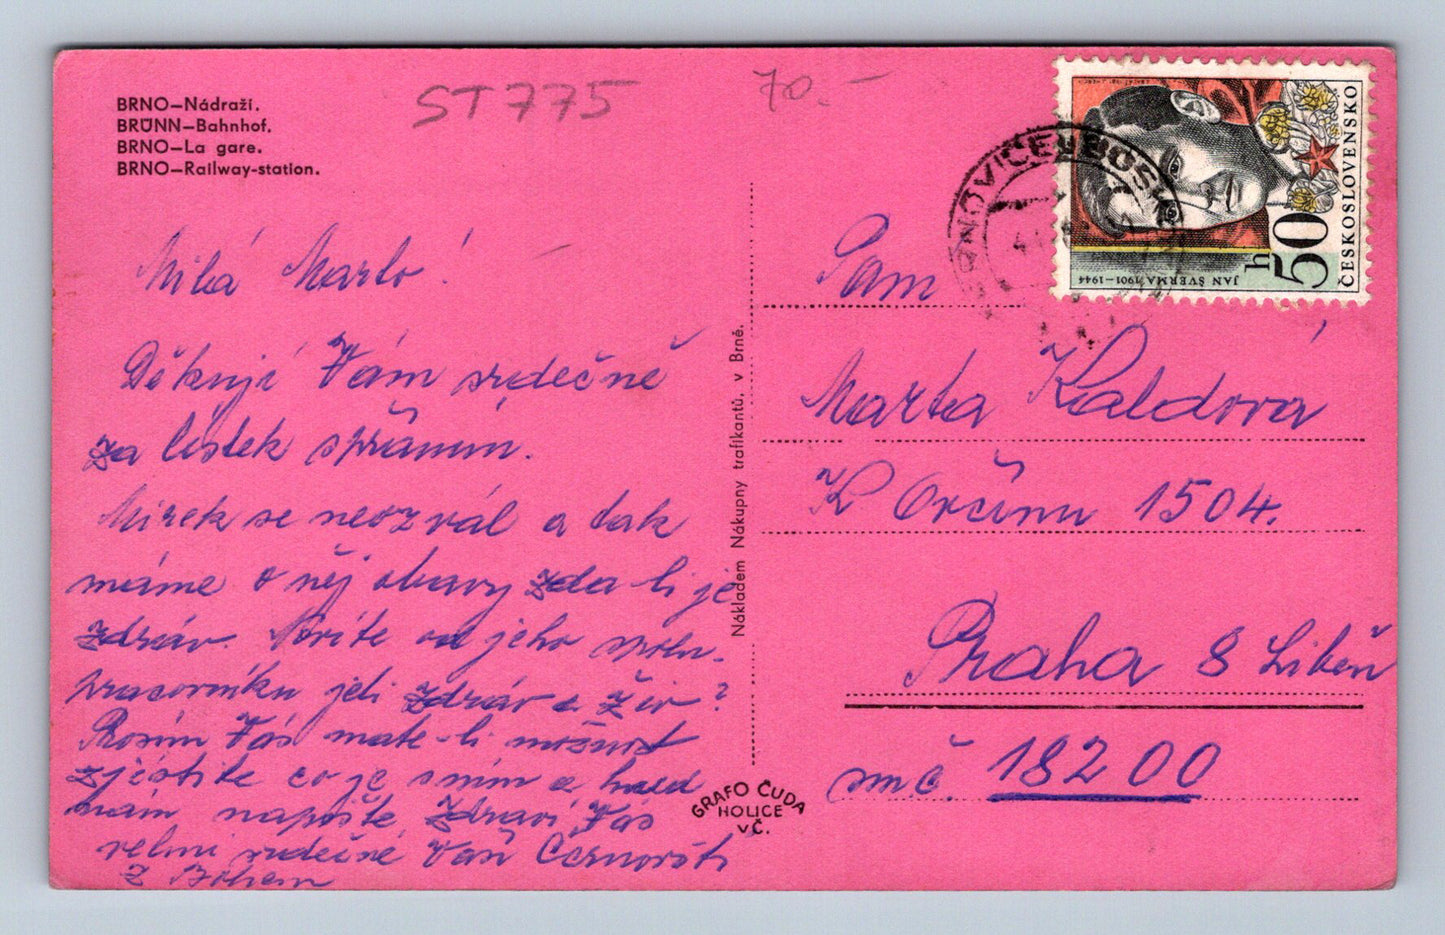 BRNO—Nádraží.
BRÜNN—Bahnhof.
BRNO—La gare.
BRNO—Railway-station.
ST775
70.—
Milá Marto!
Děkuji Vám srdečně
za lístek s přáním.
Mirek se neozval a tak
máme o něj obavy zda-li je
zdráv. Zvíte od jeho spolu-
pracovníku jeli zdráv a živ?
Prosím Vás mate-li možnost
zjistite co je s ním a hned
nám napište. Zdraví Vás
velmi srdečně Vaši Černovští
Z Bohem
Nákladem Nákupny trafikantů, v Brně.
GRAFO ČUDA
HOLICE
v Č.
ČESKOSLOVENSKO
50 h
JAN ŠVERMA 1901–1944
Pam
Marta Kaldová
K Orčínu 1504.
Praha 8 Libeň
smč. 18200